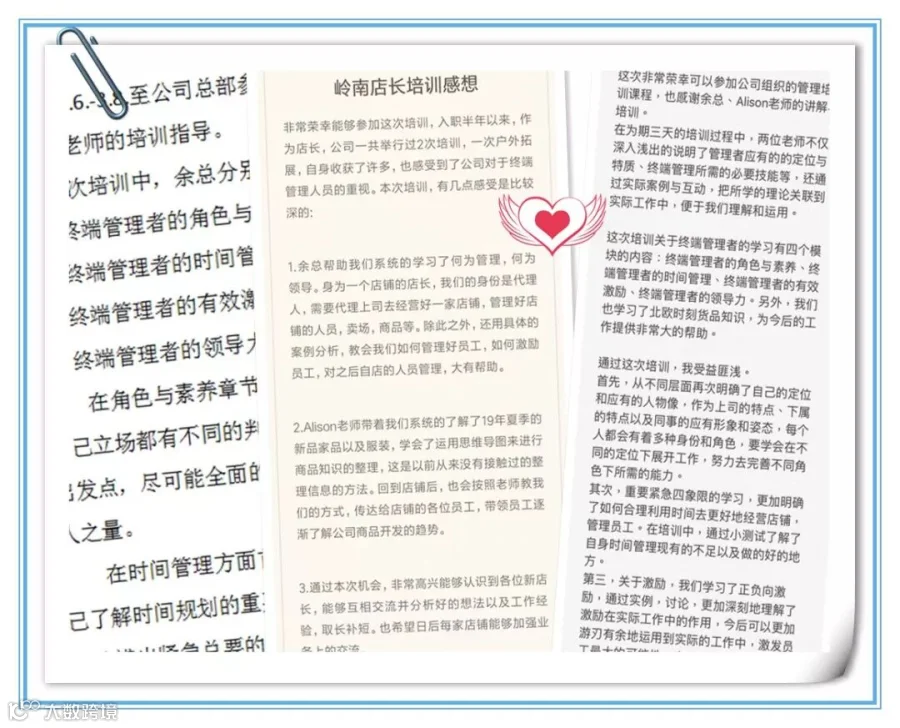 .6.-3.8.至公司总部参
老师的培训指导。
次培训中，余总分别
终端管理者的角色与
终端管理者的时间管
终端管理者的有效激
终端管理者的领导力
在角色与素养章节
己立场都有不同的判
出发点，尽可能全面的
人之量。
在时间管理方面
己了解时间规划的重
岭南店长培训感想
非常荣幸能够参加这次培训，入职半年以来，作
为店长，公司一共举行过2次培训，一次户外拓
展，自身收获了许多，也感受到了公司对于终端
管理人员的重视。本次培训，有几点感受是比较
深的：
1.余总帮助我们系统的学习了何为管理，何为
领导。身为一个店铺的店长，我们的身份是代理
人，需要代理上司去经营好一家店铺，管理好店
铺的人员，卖场，商品等。除此之外，还用具体的
案例分析，教会我们如何管理好员工，如何激励
员工，对之后自店的人员管理，大有帮助。
2.Alison老师带着我们系统的了解了19年夏季的
新品家品以及服装，学会了运用思维导图来进行
商品知识的整理，这是以前从来没有接触过的整
理信息的方法。回到店铺后，也会按照老师教我
们的方式，传达给店铺的各位员工，带领员工逐
渐了解公司商品开发的趋势。
3.通过本次机会，非常高兴能够认识到各位新店
长，能够互相交流并分析好的想法以及工作经
验，取长补短。也希望日后每家店铺能够加强业
务上的交流
这次非常荣幸可以参加公司组织的管理培
训课程，也感谢余总、Alison老师的讲解
培训。
在为期三天的培训过程中，两位老师不仅
深入浅出的说明了管理者应有的的定位与
特质、终端管理所需的必要技能等，还通
过实际案例与互动，把所学的理论关联到
实际工作中，便于我们理解和运用。
这次培训关于终端管理者的学习有四个模
块的内容：终端管理者的角色与素养、终
端管理者的时间管理、终端管理者的有效
激励、终端管理者的领导力。另外，我们
也学习了北欧时刻货品知识，为今后的工
作提供非常大的帮助。
通过这次培训，我受益匪浅。
首先，从不同层面再次明确了自己的定位
和应有的人物像，作为上司的特点、下属
的特点以及同事的应有形象和姿态，每个
人都会有着多种身份和角色，要学会在不
同的定位下展开工作，努力去完善不同角
色下所需的能力。
其次，重要紧急四象限的学习，更加明确
了如何合理利用时间去更好地经营店铺，
管理员工。在培训中，通过小测试了解了
自身时间管理现有的不足以及做的好的地
方。
第三，关于激励，我们学习了正负向激
励，通过实例，讨论，更加深刻地理解了
激励在实际工作中的作用，今后可以更加
游刃有余地运用到实际的工作中，激发员
大数跨境